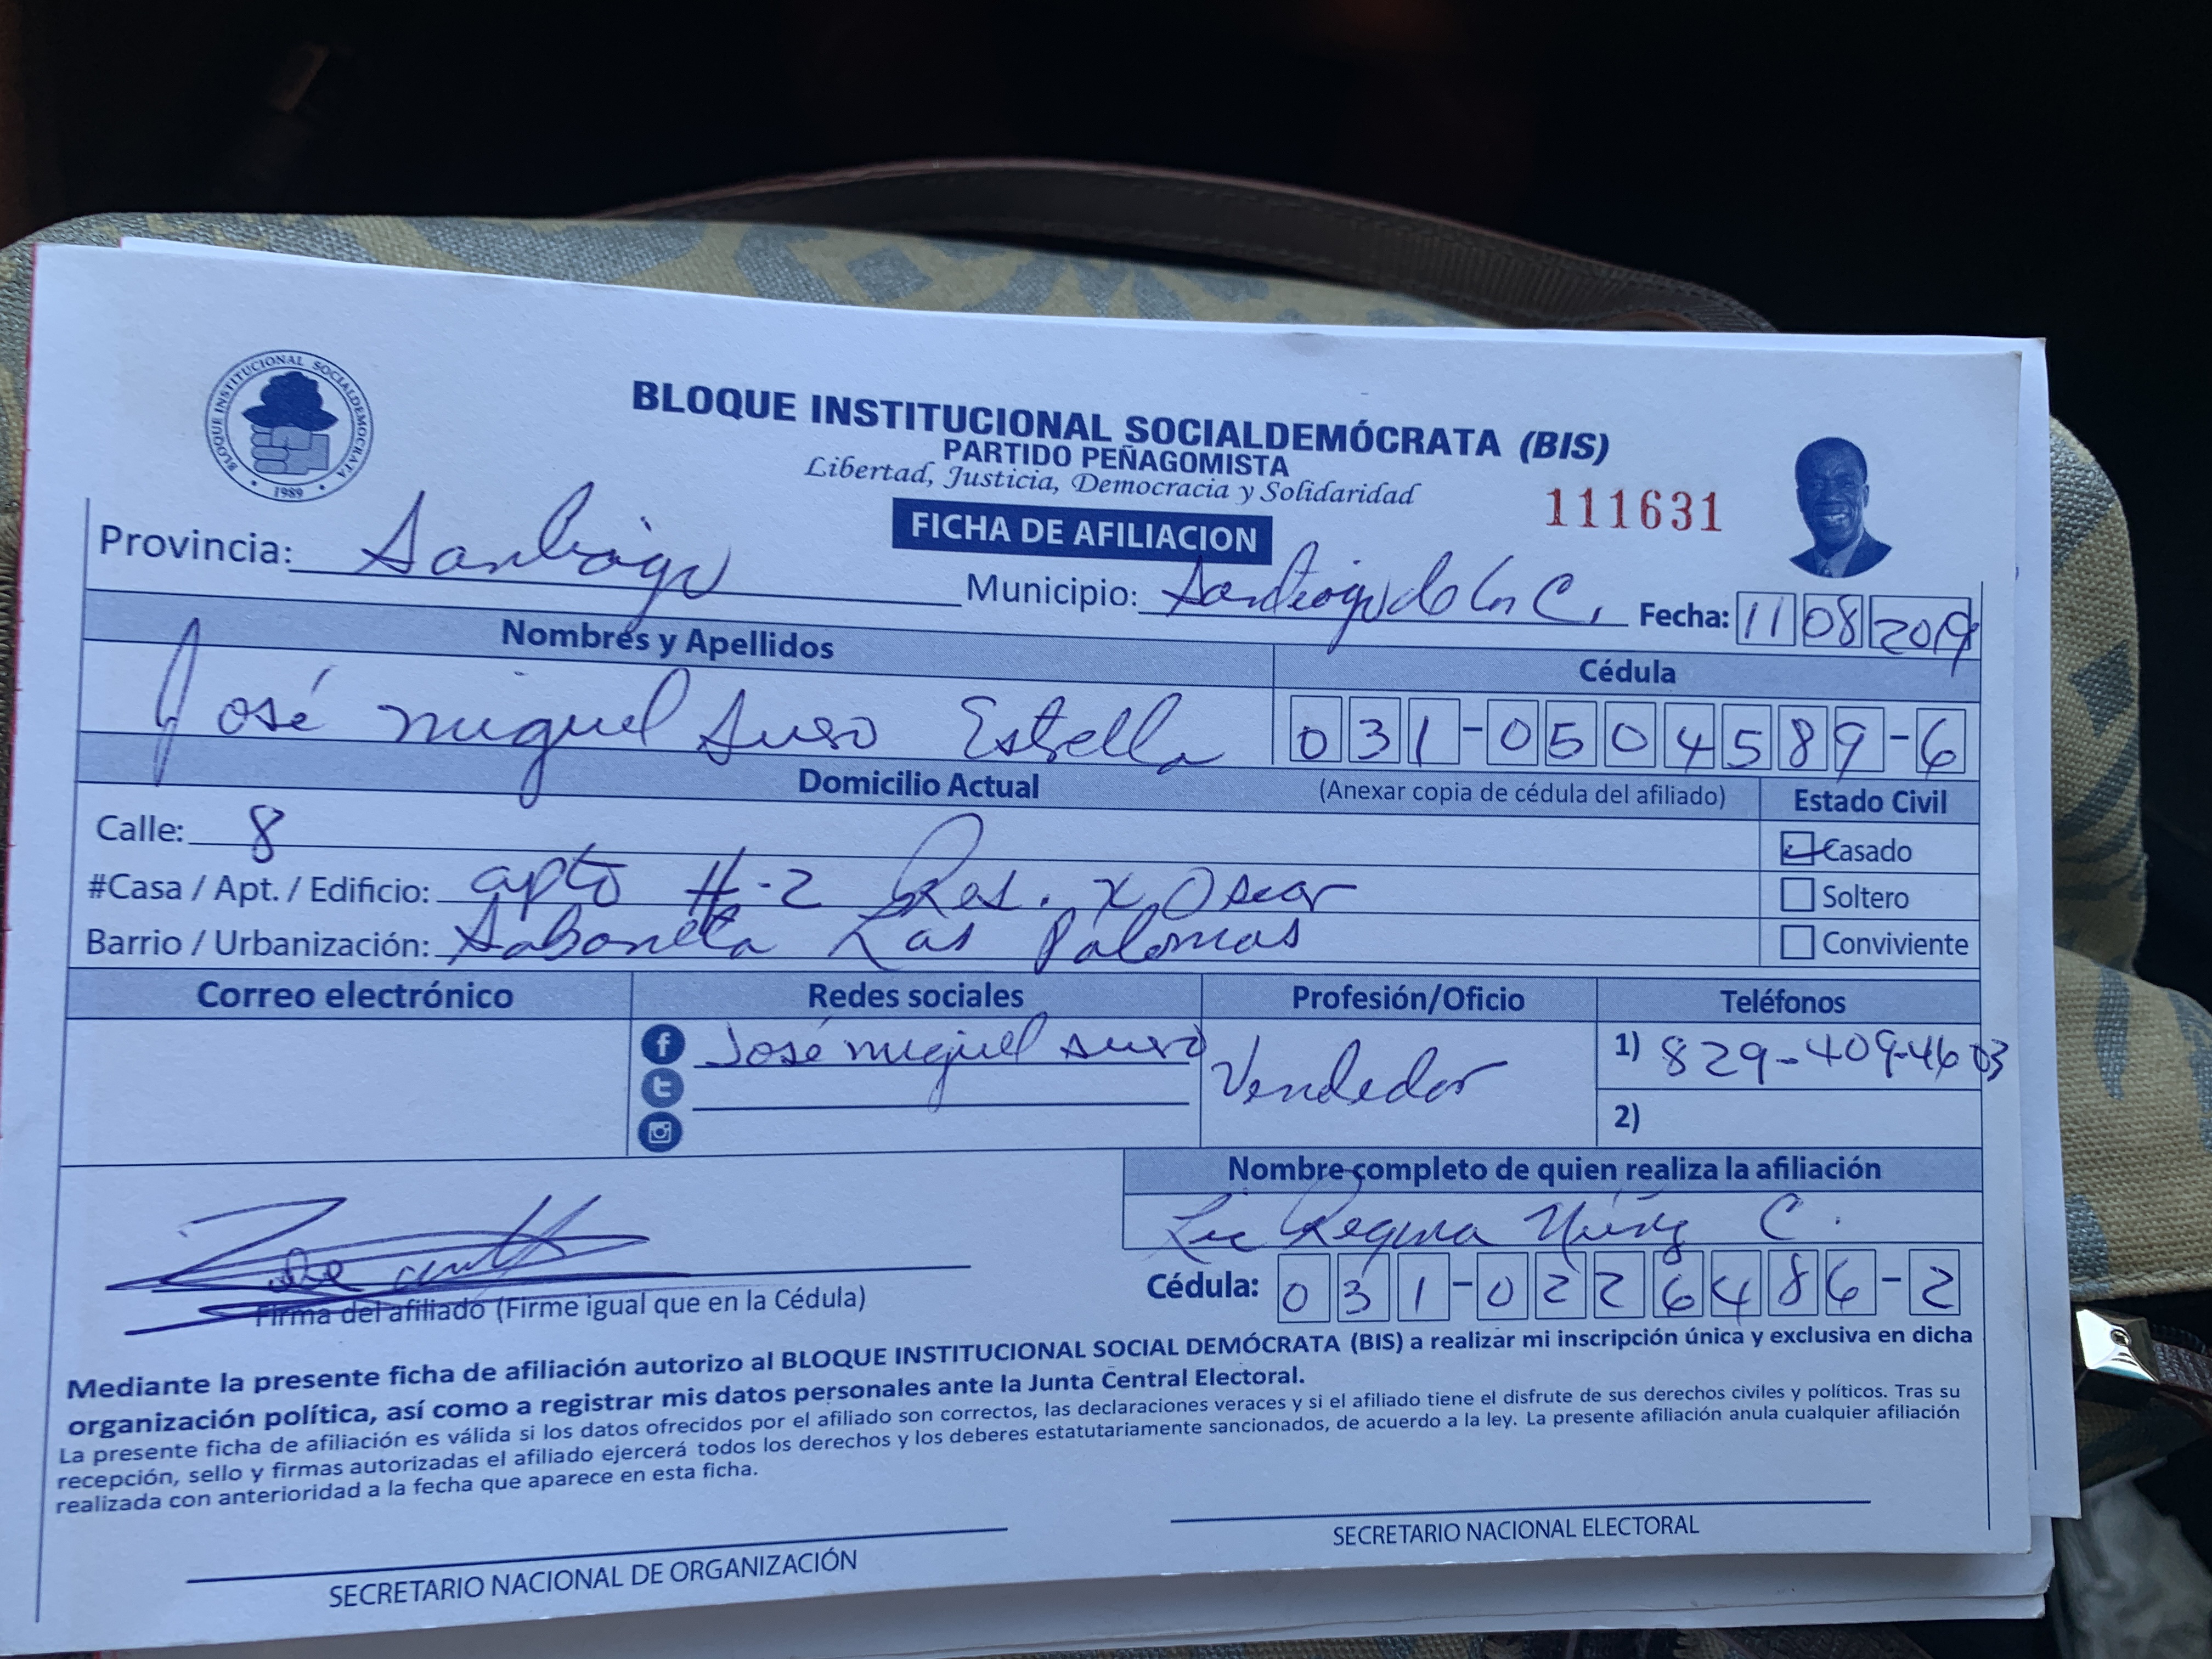 BLOQUE INSTITUCIONAL SOCIALDEMOCRATA
1989
BLOQUE INSTITUCIONAL SOCIALDEMÓCRATA (BIS)
PARTIDO PEÑAGOMISTA
Libertad, Justicia, Democracia y Solidaridad
FICHA DE AFILIACION
111631
Provincia: Santiago
Municipio: Santiago de los C. Fecha: 11 08 2019
Nombres y Apellidos
Cédula
José miguel Suro Estrella
031-0504589-6
Domicilio Actual
(Anexar copia de cédula del afiliado)
Estado Civil
Calle: 8
Casado
#Casa / Apt. / Edificio: apto #-2 Res. X Oscar
Soltero
Barrio / Urbanización: Saboneta Las Palomas
Conviviente
Correo electrónico
Redes sociales
Profesión/Oficio
Teléfonos
José miguel suro
Vendedor
1) 829-409-4603
2)
Nombre completo de quien realiza la afiliación
Lic Regina Núñez C.
Cédula: 031-0226486-2
Firma del afiliado (Firme igual que en la Cédula)
Mediante la presente ficha de afiliación autorizo al BLOQUE INSTITUCIONAL SOCIAL DEMÓCRATA (BIS) a realizar mi inscripción única y exclusiva en dicha
organización política, así como a registrar mis datos personales ante la Junta Central Electoral.
La presente ficha de afiliación es válida si los datos ofrecidos por el afiliado son correctos, las declaraciones veraces y si el afiliado tiene el disfrute de sus derechos civiles y políticos. Tras su
recepción, sello y firmas autorizadas el afiliado ejercerá todos los derechos y los deberes estatutariamente sancionados, de acuerdo a la ley. La presente afiliación anula cualquier afiliación
realizada con anterioridad a la fecha que aparece en esta ficha.
SECRETARIO NACIONAL DE ORGANIZACIÓN
SECRETARIO NACIONAL ELECTORAL